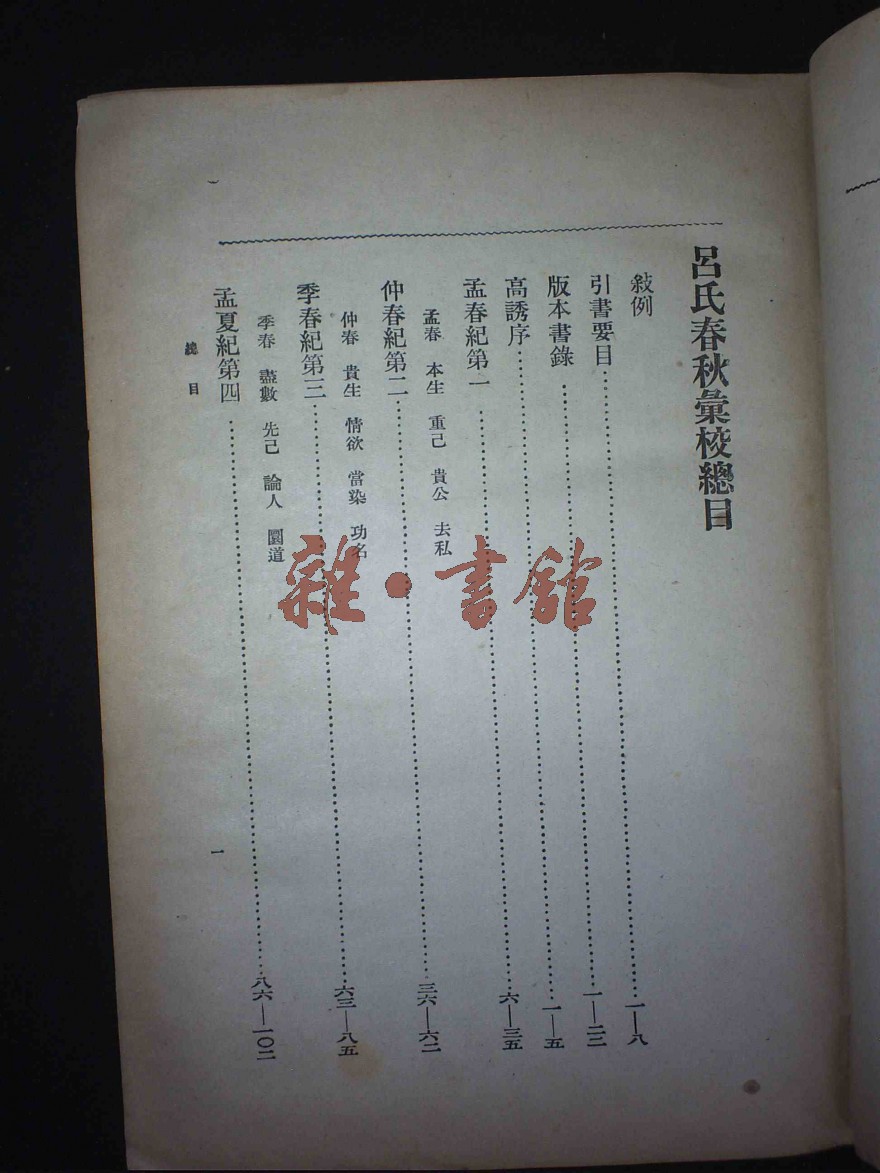 呂氏春秋彙校總目
敍例
引書要目……一—八
版本書錄……一—二二
高誘序……一—五
孟春紀第一……六—三五
孟春 本生 重己 貴公 去私
仲春紀第二……三六—六二
仲春 貴生 情欲 當染 功名
季春紀第三……六三—八五
季春 盡數 先己 論人 圜道
孟夏紀第四……八六—一〇二
總目
一
雜·書館